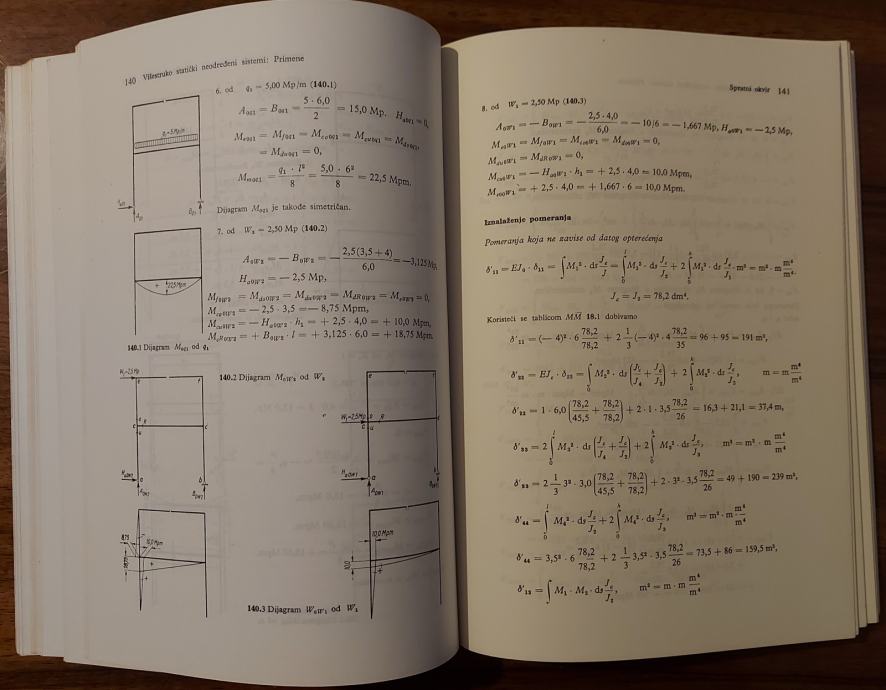 140 Višestruko statički neodređeni sistemi: Primene
6. od q₁ = 5,00 Mp/m (140.1)
A₀q₁ = B₀q₁ = 5 · 6,0 / 2 = 15,0 Mp. Hₐ₀q₁ = 0,
= M_du0q1 = 0,
M_m0q1 = q₁ · l² / 8 = 5,0 · 6² / 8 = 22,5 Mpm.
Dijagram M₀q₁ je takođe simetričan.
7. od W₂ = 2,50 Mp (140.2)
A₀W₂ = — B₀W₂ = — 2,5(3,5 + 4) / 6,0 = —3,125 Mp,
Hₐ₀W₂ = — 2,5 Mp,
M_f0W2 = M_do0W2 = M_du0W2 = M_dR0W2 = M_e0W2 = 0,
M_co0W2 = — 2,5 · 3,5 = — 8,75 Mpm,
M_cu0W2 = — Hₐ₀W₂ · h₁ = + 2,5 · 4,0 = + 10,0 Mpm,
M_cR0W2 = + B₀W₂ · l = + 3,125 · 6,0 = + 18,75 Mpm.
140.1 Dijagram M₀q₁ od q₁
140.2 Dijagram M₀W₂ od W₂
140.3 Dijagram W₀W₁ od W₁
Spratni okvir 141
8. od W₁ = 2,50 Mp (140.3)
A₀W₁ = — B₀W₁ = — 2,5 · 4,0 / 6,0 = — 10/6 = — 1,667 Mp, Hₐ₀W₁ = — 2,5 Mp,
M_e0W1 = M_f0W1 = M_co0W1 = M_do0W1 = 0,
M_du0W1 = M_dR0W1 = 0,
M_cu0W1 = — Hₐ₀W₁ · h₁ = + 2,5 · 4,0 = 10,0 Mpm,
= + 2,5 · 4,0 = + 1,667 · 6 = 10,0 Mpm.
Iznalaženje pomeranja
Pomeranja koja ne zavise od datog opterećenja
J_c = J₂ = 78,2 dm⁴.
Koristeći se tablicom MM̄ 18.1 dobivamo
δ'₁₁ = (— 4)² · 6 78,2/78,2 + 2 1/3 (— 4)² · 4 78,2/35 = 96 + 95 = 191 m³,
δ'₂₂ = EJ_c · δ₂₂ = ∫₀ˡ M₂² · ds (J_c/J₄ + J_c/J₂) + 2 ∫₀ʰ M₂² · ds J_c/J₃, m = m m⁴/m⁴
δ'₂₂ = 1 · 6,0 (78,2/45,5 + 78,2/78,2) + 2 · 1 · 3,5 78,2/26 = 16,3 + 21,1 = 37,4 m,
δ'₃₃ = 2 ∫₀ˡ M₃² · ds (J_c/J₄ + J_c/J₂) + 2 ∫₀ʰ M₃² · ds J_c/J₃, m³ = m² · m m⁴/m⁴
δ'₃₃ = 2 1/3 3² · 3,0 (78,2/45,5 + 78,2/78,2) + 2 · 3² · 3,5 78,2/26 = 49 + 190 = 239 m³,
δ'₄₄ = ∫₀ˡ M₄² · ds J_c/J₂ + 2 ∫₀ʰ M₄² · ds J_c/J₃, m³ = m² · m · m⁴/m⁴
δ'₄₄ = 3,5² · 6 78,2/78,2 + 2 1/3 3,5² · 3,5 78,2/26 = 73,5 + 86 = 159,5 m³,
δ'₁₂ = ∫ M₁ · M₂ · ds J_c/J₂, m² = m · m m⁴/m⁴